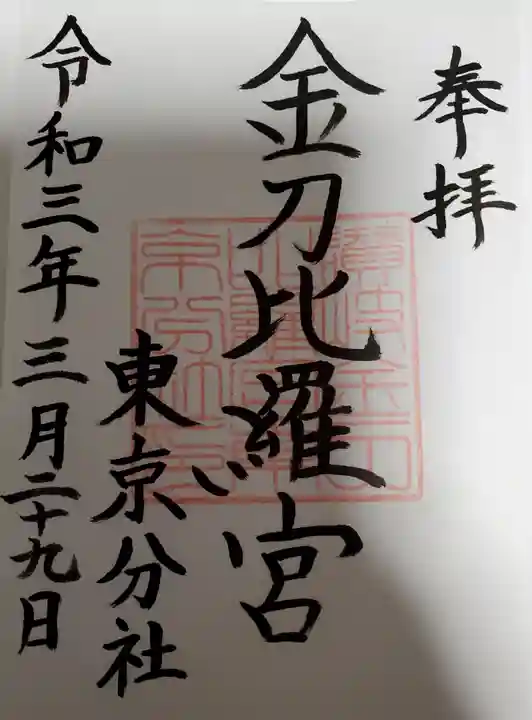 奉拝
金刀比羅宮
東京分社
令和三年三月二十九日